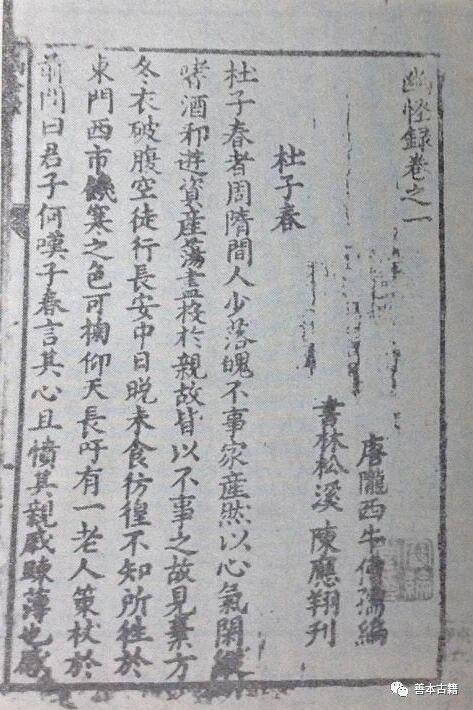 幽怪録卷之一
唐隴西牛僧孺編
書林松溪陳應翔刊
杜子春
杜子春者周隋間人少落魄不事家産然以心氣閑縱
嗜酒邪遊資産蕩盡投於親故皆以不事之故見棄方
冬衣破腹空徒行長安中日晚未食彷徨不知所往於
東門西市饑寒之色可掬仰天長吁有一老人策杖於
前問曰君子何嘆子春言其心且憤其親戚踈薄也感
善本古籍